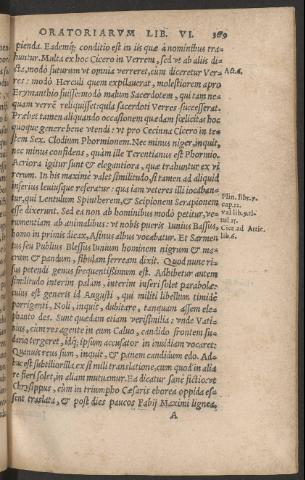 ORATORIARVM LIB. VI. 369
pienda. Eademq́; conditio est in iis quæ à nominibus tra-
huntur. Multa ex hoc Cicero in Verrem, sed vt ab aliis di-
cta, modò futurum vt omnia verreret, cum diceretur Ver-
res: modò Herculi quem expilauerat, molestiorem apro
Erymanthio fuisse: modò malum Sacerdotem, qui tam ne-
quam verrē reliquisset: quia sacerdoti Verres successerat.
Præbet tamen aliquando occasionem quædam fœlicitas hoc
quoque genere bene vtendi: vt pro Cecinna Cicero in te-
stem Sex. Clodium Phormionem. Nec minus niger, inquit,
nec minus confidens, quàm ille Terentianus est Phormio.
Acriora igitur sunt & elegantiora, quæ trahuntur ex vi
rerum. In his maximè valet similitudo, si tamen ad aliquid
inferius leuiusque referatur: quæ iam veteres illi iocaban-
tur, qui Lentulum Spintherem, & Scipionem Serapionem
esse dixerunt. Sed ea non ab hominibus modò petitur, ve-
rumetiam ab animalibus: vt nobis pueris Iunius Bassus,
homo in primis dicax, Asinus albus vocabatur. Et Sarmen
tus seu Publius Blessius Iunium hominem nigrum & ma-
crum & pandum, fibulam ferream dixit. Quod nunc ri-
sus petendi genus frequentissimum est. Adhibetur autem
similitudo interim palam, interim inseri solet parabolæ:
cuius est generis id Augusti, qui militi libellum timidè
porrigenti, Noli, inquit, dubitare, tanquam assem ele-
phanto des. Sunt quædam etiam verisimilia: vnde Vati-
nius, cum reus agente in eum Caluo, candido frontem su-
dario tergeret, idq́; ipsum accusator in inuidiam vocaret:
Quamuis reus sum, inquit, & panem candidum edo. Ad-
huc est subtilior illa ex simili translatio, cum quod in alia
re fieri solet, in aliam mutamur. Ea dicatur sanè fictio: vt
Chrysippus, cùm in triumpho Cæsaris eborea oppida es-
sent traslata, & post dies paucos Fabij Maximi lignea,
A
Act. 6.
Plin. libr. 7.
cap. 12.
Val. lib. 9. ti-
tul. 15.
Cice. ad Attic.
lib. 6.